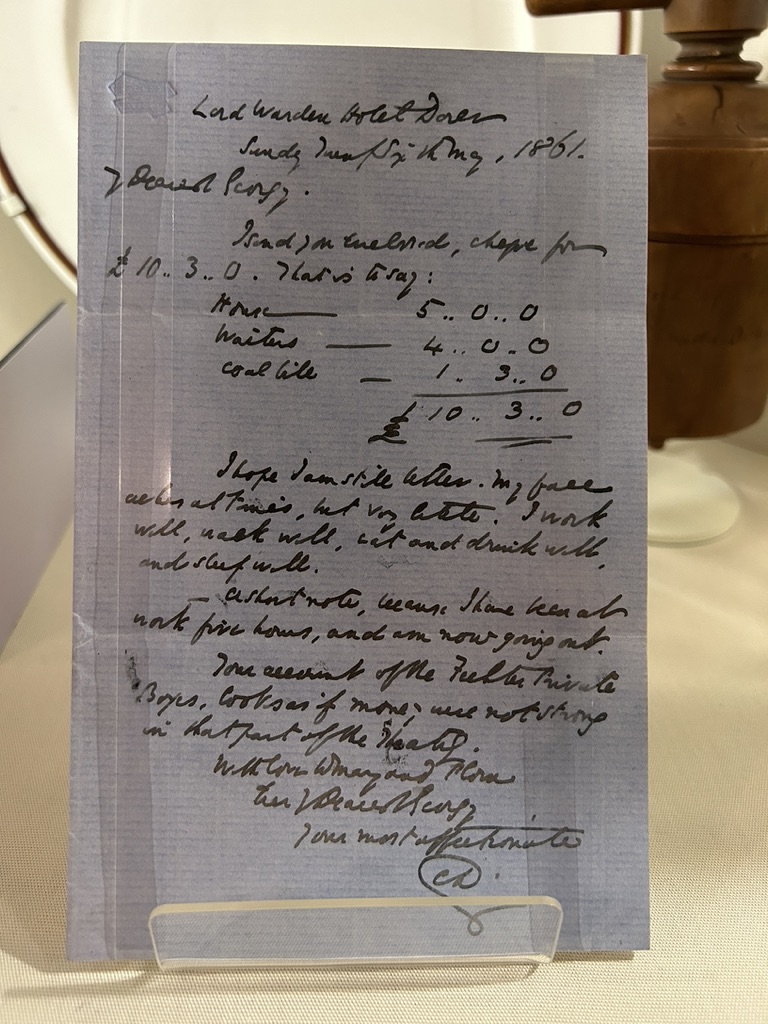 Lord Warden Hotel Dover
Sunday Twenty Sixth May, 1861.
My Dearest Georgy.
I send you enclosed, cheque for
£10..3..0. That is to say:
House — 5..0..0
Waiters — 4..0..0
Coal bill — 1..3..0
£10..3..0
I hope I am still better. My face
aches at times, but very little. I work
well, walk well, eat and drink well,
and sleep well.
— A short note, because I have been at
work five hours, and am now going out.
Your account of the Fechter Private
Boxes, looks as if money were not strong
in that part of the Theatre.
With love to Mary and Plorn
Ever My Dearest Georgy
Your most affectionate
CD.